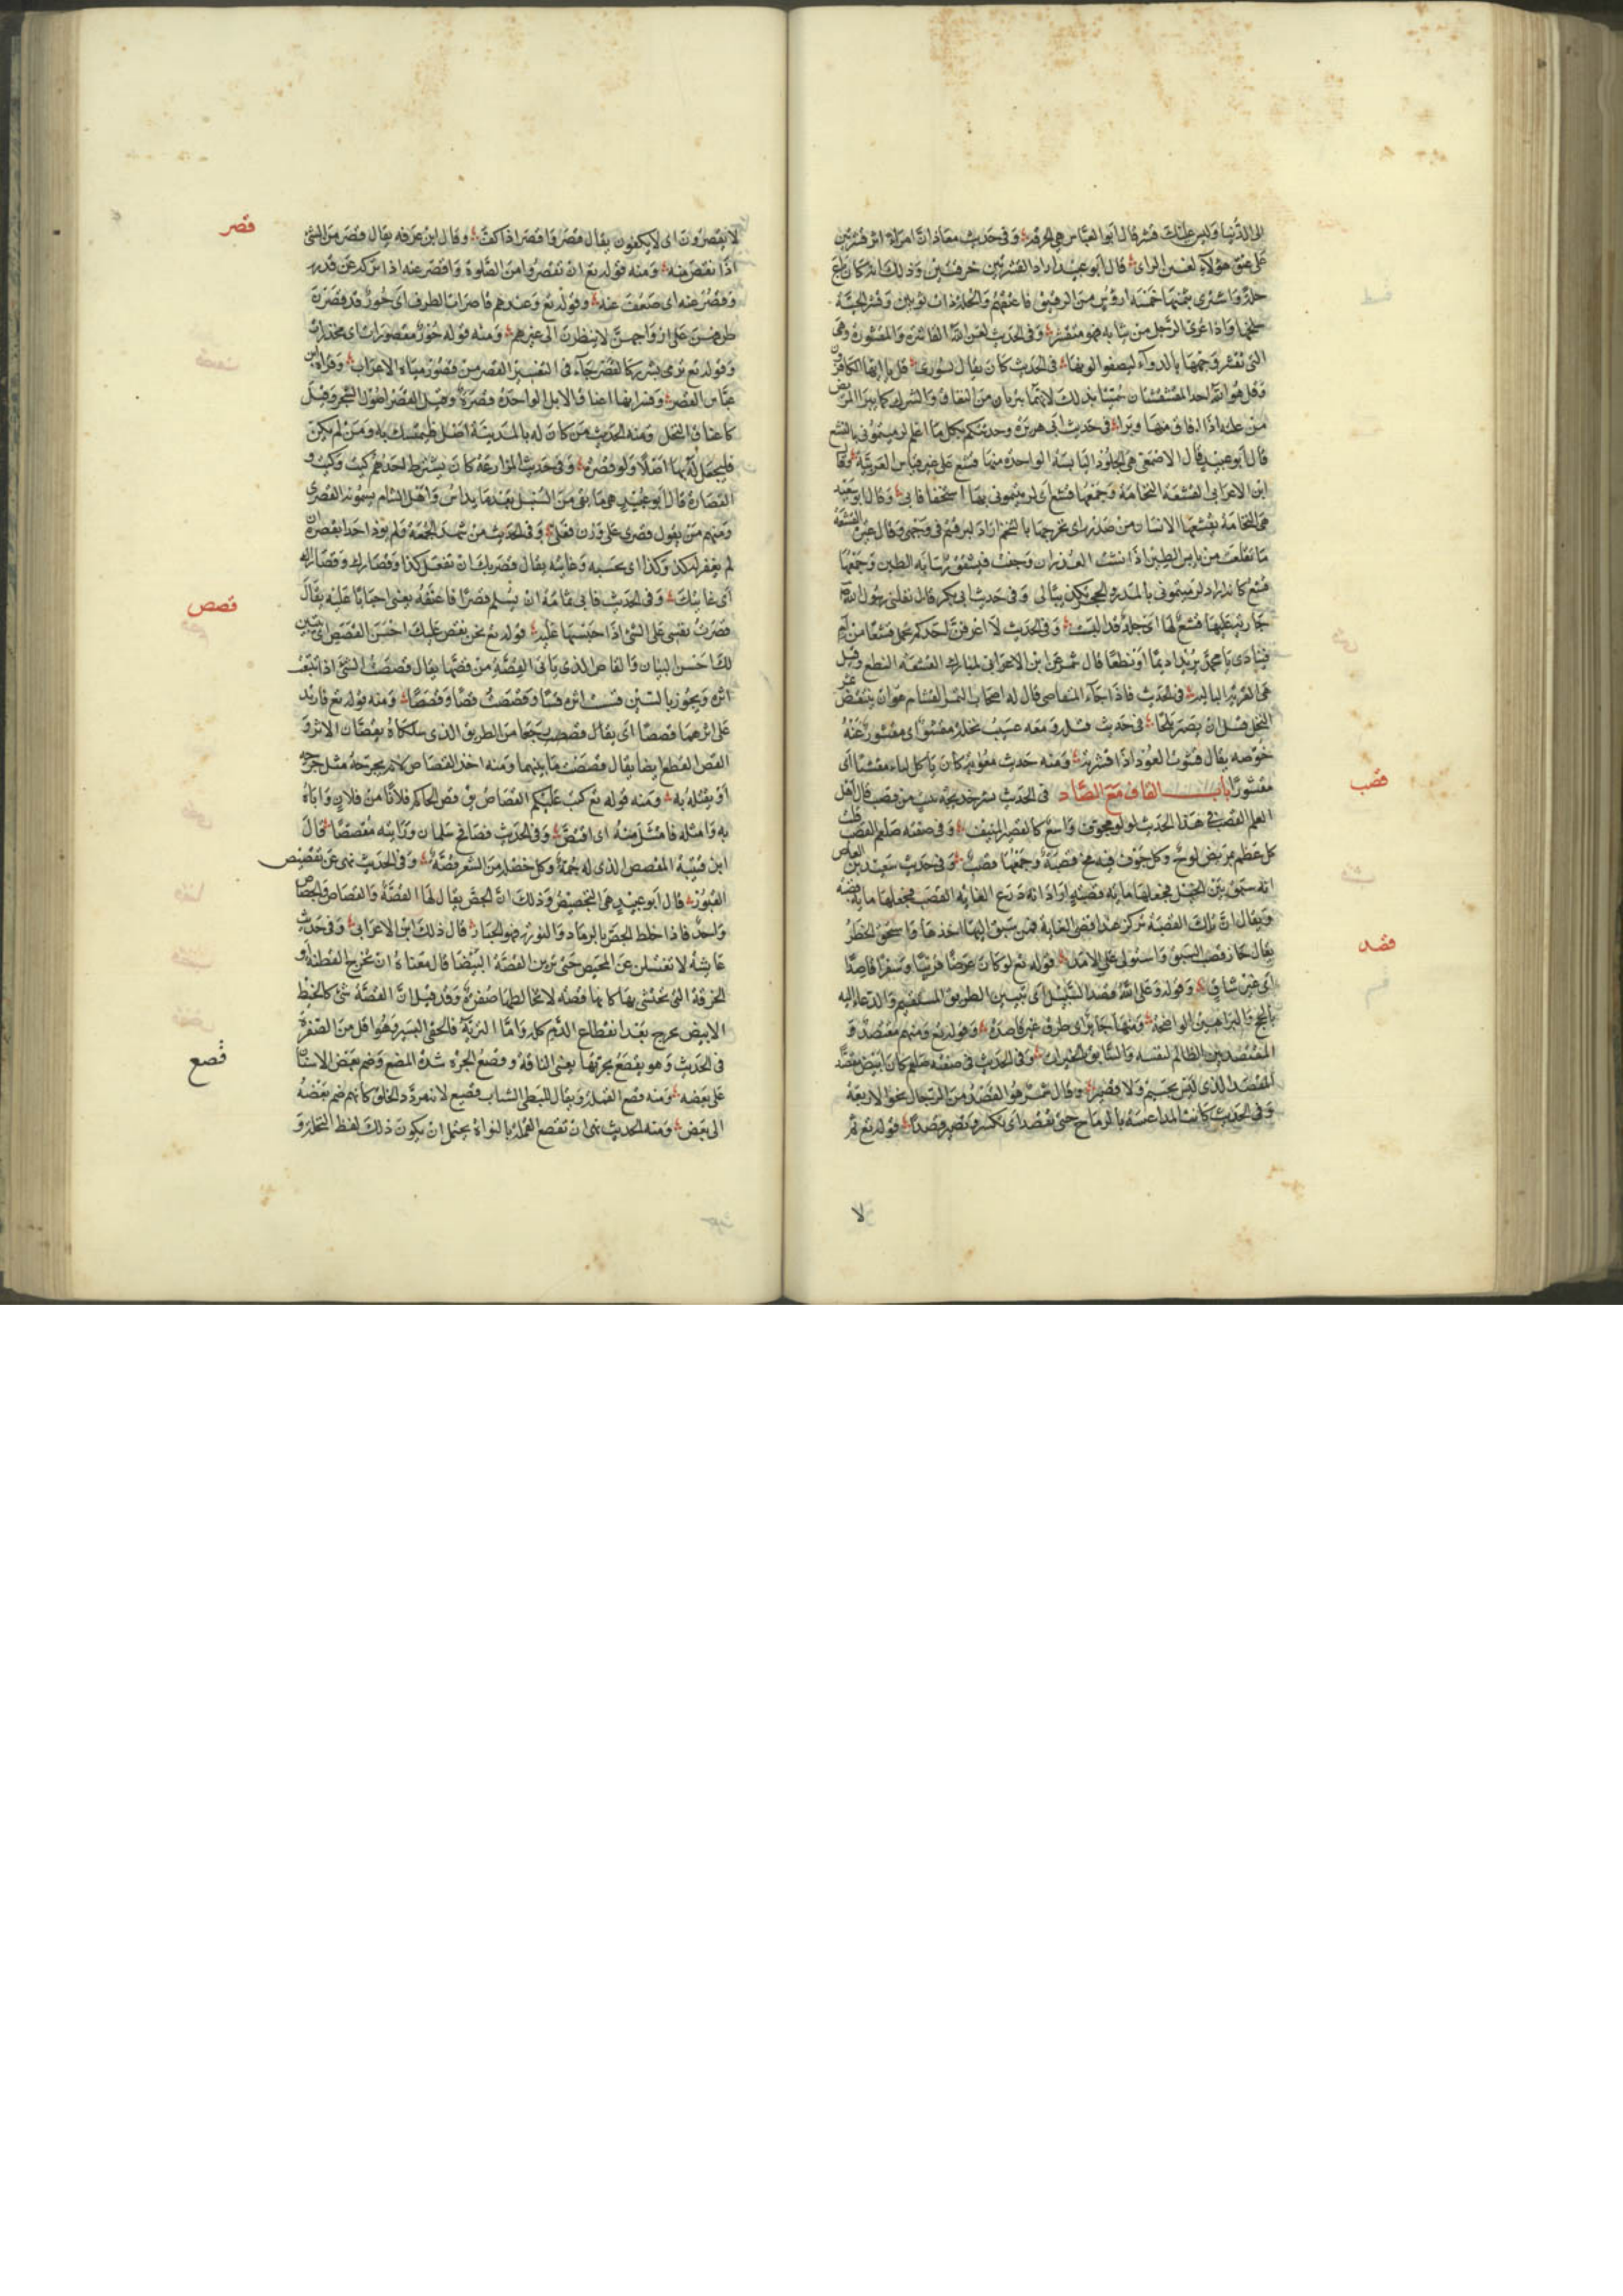 الى الدنيا وليس عليك قشر قال ابو العباس هي الخرقة وفي حديث معاذ ان امراة اثر قشرتين
على عتق هؤلاء لغبين الراى قال ابو عبيد اراد القشرتين خرقتين وذلك انه كان باع
حلة واشترى بثمنها خمسة ارؤس من الرقيق فاعتقهم والحلة ذات ثوبين وقشر الحية
سلخها واذا عرى الرجل من ثيابه فهو متقشر وفي الحديث لعن الله القاشرة والمقشورة وهي
التي تقشر وجهها بالدواء ليصفو لونها في الحديث كان يقال لسورتى قل يا ايها الكافرون
وقل هو الله احد المقشقشتان سميتا بذلك لانهما يبريان من النفاق والشرك كما يبرا المريض
من علته اذا افاق منها وبرا في حديث ابى هريرة وحدثتكم بكل ما اعلم لرميتموني بالقشع
قال ابو عبيد قال الاصمعى هي الجلود اليابسة الواحدة منها قشع على غير قياس العربية وقال
ابن الاعرابى القشعة النخامة وجمعها قشع اى لرميتمونى بها استخفافا بى وقال ابو سعيد
هي النخامة يقشعها الانسان من صدره اى يخرجها بالتنخم اراد لبزقتم في وجهى وقال غيره القشعة
ما تقلف من يابس الطين اذا نشت الغدران وجفت فيتشقق ما رسا به الطين وجمعها
قشع كانه اراد لرميتموني بالمدر والحجر تكذيبا لى وفي حديث ابى بكر قال نفلنى رسول الله
جارية عليها قشع لها اى جلد قد البست وفي الحديث لا اعرفن احدكم يحمل قشعا من ادم
فينادى يا محمد يريد اديما او نطعا قال شمر عن ابن الاعرابى لمبارك القشعة النطع وقيل
هي القربة البالية في الحديث فاذا جاء المتقاضى قال له اصاب الثمر القشام هو ان ينتفض ثمر
النخل قبل ان يصير بلحا في حديث قيلة ومعه عسيب نخلة مقشو اى مقشور عنه
خوصه يقال قشوت العود اذا قشرته ومنه حديث معوية كان ياكل لياء مقشيا اى
مقشورا باب القاف مع الصاد في الحديث بشر خديجة ببيت من قصب قال اهل
العلم القصب في هذا الحديث لولو مجوف واسع كالقصر المنيف وفي صفته صلعم القصب
كل عظم عريض لوح وكل جوف فيه مخ قصبة وجمعها قصب وفي حديث سعيد بن العاص
انه سبق بين الخيل فجعلها ماية قصبة اراد انه ذرع الغاية القصب فجعلها ماية قصبة
ويقال ان تلك القصبة تركز عند اقصى الغاية فمن سبق اليها اخذها واستحق الخطر
يقال حاز قصب السبق واستولى على الامد قوله تع لو كان عرضا قريبا وسفرا قاصدا
اى غير شاق وقوله وعلى الله قصد السبيل اى تبيين الطريق المستقيم والدعاء اليه
بالحجج والبراهين الواضحة ومنها جائر اى طرق غير قاصدة وقوله تع ومنهم مقتصد و
المقتصد بين الظالم لنفسه والسابق بالخيرات وفي الحديث في صفته صلعم كان ابيض مقصدا
المقصد الذى ليس بجسيم ولا قصير وقال شمر هو القصد من الرجال نحو الربعة
وفي الحديث كانت المداعسة بالرماح حتى تقصد اى تكسر وتصير قصدا قوله تع ثم
قصب
قصد
لا
لا يقصرون اى لا يكفون يقال قصر واقصر اذا كف وقال ابن عرفه يقال قصر من الشئ
اذا نقص منه ومنه قوله تع ان تقصروا من الصلوة واقصر عنه اذا تركه عن قدره
وقصر عنه اى ضعف عنه وقوله تع وعندهم قاصرات الطرف اى حور قد قصرن
طرفهن على ازواجهن لا ينظرن الى غيرهم ومنه قوله حور مقصورات اى مخدرات
وقوله تع ترمى بشرر كالقصر جاء في التفسير القصر من قصور مياه الاعراب وقراء ابن
عباس القصر وفسر بها اعناق الابل الواحدة قصرة وقيل القصر اصول الشجر وقيل
كاعناق النخل ومنه الحديث من كان له بالمدينة اصل فليتمسك به ومن لم يكن
فليجعل له بها اصلا ولو قصرة وفي حديث المزارعة كان يشترط احدهم كيت وكيت و
القصارة قال ابو عبيد هي ما بقى من السنبل بعد ما يداس واهل الشام يسمونه القصرى
ومنهم من يقول قصرى على وزن فعلى وفي الحديث من شهد الجمعة ولم يوذ احدا بقصره ان
لم يغفر له كذا وكذا اى بحسبه وغايته يقال قصريك ان تفعل كذا وقصارك وقصاراك
اى غايتك وفي الحديث فابى ثمامة ان يسلم قصرا فاعتقه يعنى اجبارا عليه يقال
قصرت نفسى على الشئ اذا حبستها عليه قوله تع نحن نقص عليك احسن القصص اى نبين
لك احسن البيان والقاص الذى ياتى القصة من قصها يقال قصصت الشئ اذا تتبعت
اثره ويجوز بالسين قسست اثره قسا وقصصت قصا وقصصا ومنه قوله تع فارتدا
على اثرهما قصصا اى يقال قصصا رجعا من الطريق الذى سلكاه يقصان الاثر و
القص القطع ايضا يقال قصصت ما بينهما ومنه اخذ القصاص لانه يجرحه مثل جرحه
او يقتله به ومنه قوله تع كتب عليكم القصاص يق قص الحاكم فلانا من فلان واباه
به وامثله فامتثل منه اى اقتص وفي الحديث فصافح سلمان ورايته مقصصا قال
ابن قتيبة المقصص الذى له جمة وكل خصلة من الشعر قصة وفي الحديث نهى عن تقصيص
القبور قال ابو عبيد هي التجصيص وذلك ان الجص يقال لها القصة والقصاص والجصاص
واحد فاذا خلط الجص بالرماد والنورة فهو الجيار قال ذلك ابن الاعرابى وفي حديث
عايشة لا تغتسلن عن المحيض حتى ترين القصة البيضا قال معناه ان تخرج القطنة او
الخرقة التى تحتشى بها كانها قصة لا تخالطها صفرة وقد قيل ان القصة شئ كالخيط
الابيض يخرج بعد انقطاع الدم كله واما التربة فالخفى اليسير وهو اقل من الصفرة
في الحديث وهو يقصع بجرتها يعنى الناقة وقصع الجرة شدة المضغ وضم بعض الاسنان
على بعضه ومنه قصع القملة ويقال للبطى الشباب قصيع لانه مردد الخلق كانه ضم بعضه
الى بعض ومنه الحديث نهى ان تقصع القملة بالنواة يحتمل ان يكون ذلك لفظ النخلة و
قصر
قصص
قصع